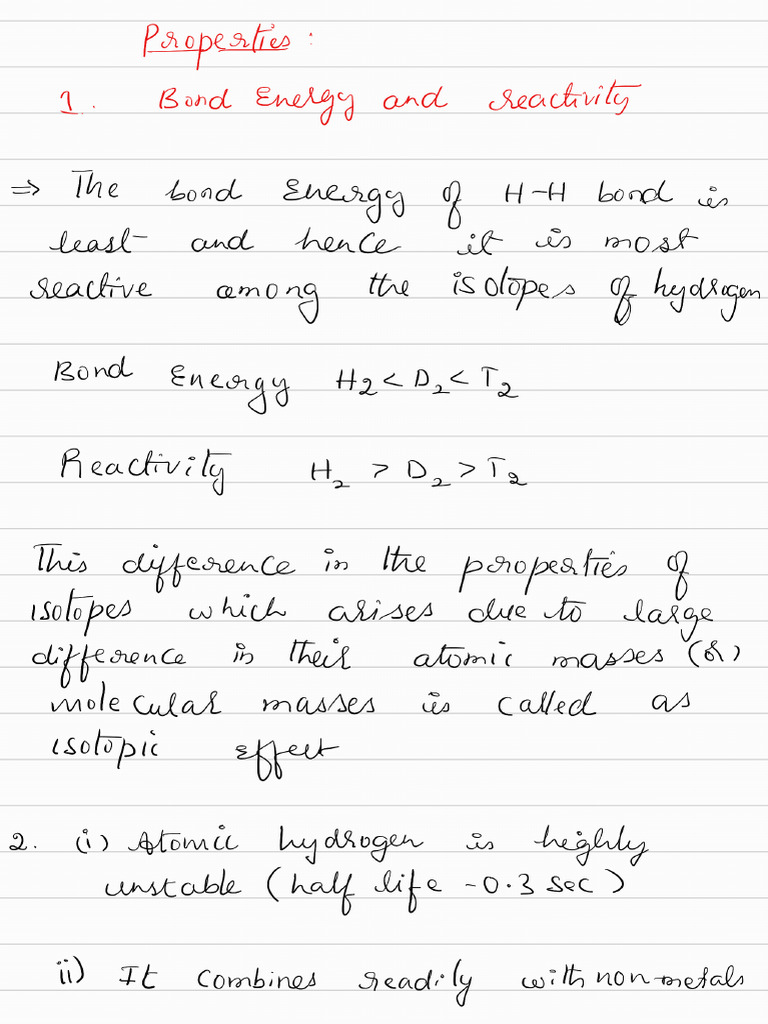 Properties :
1. Bond Energy and reactivity
⇒ The bond Energy of H-H bond is
least and hence it is most
reactive among the isotopes of hydrogen
Bond Energy H2 < D₂ < T₂
Reactivity H₂ > D₂ > T₂
This difference in the properties of
isotopes which arises due to large
difference in their atomic masses (or)
molecular masses is called as
isotopic effect
2. (i) Atomic hydrogen is highly
unstable (half life -0.3 sec)
ii) It combines readily with non-metals